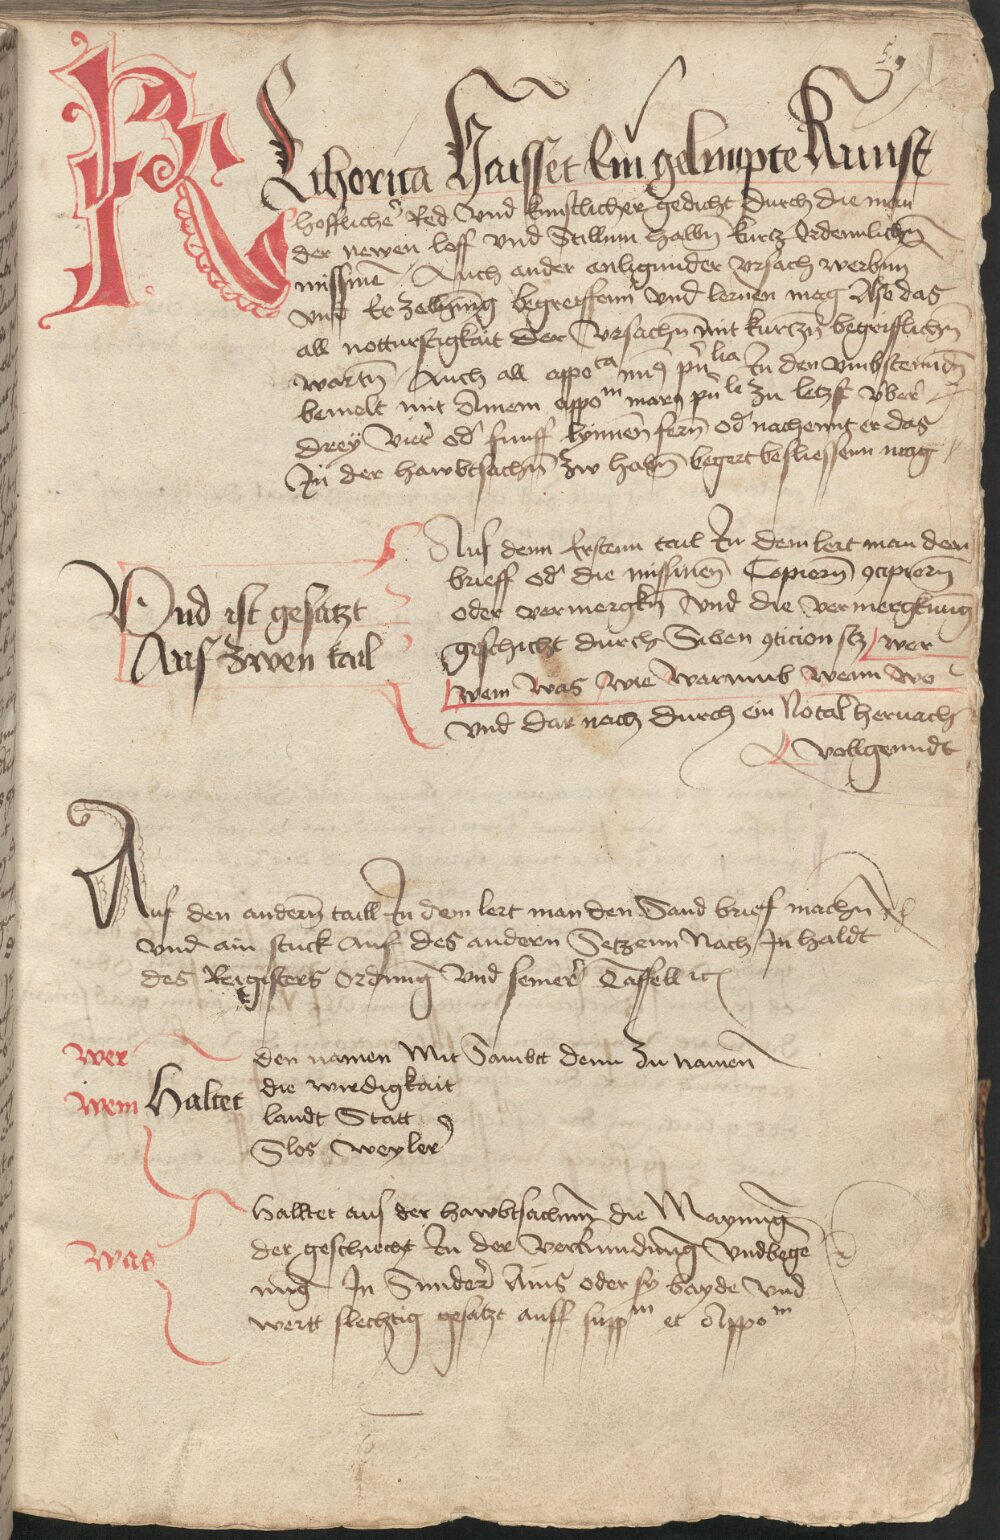 REthorica Haisset Ein gelimpte Kunst
hofflicher Red Vnd kunstlicher gedicht durch die man
der newen loff vnd Stillum halbn kurtz Ordennlichn
missiuen Auch ander anligunder vrsach werbnn
vnd Er Zellung begreiffenn vnd lernen mag Also das
all notturftigkait der Vrsachn mit kurtzn begrifflichn
wortn Auch all appo ca In den vmbstenndn
bemelt mit Ainem appo m zu letzst vber
drey Vier od funff lynnen fern od nachennt er das
In der hawbtsachn zw habn begert besliessenn mag
Auf denn Ersten tail In dem lert man den
brieff od die missiuen Copiern 9cipiern
oder vermergkn Vnd die vermerckung
geschicht durch Siben 9ticion sz wer
wem was Wie Warumb Wenn Wo
vnd dar nach durch ein Notal hernach
vollgenndt
Vnd ist gesatzt
Aus zwen tail
Auf den andern taill In dem lert man den Sand brief machn
vnd ain stuck Auf des andern Setzenn Nach In haldt
des Reigisters Ordnung Vnd seiner Taffell
wer
wem Haltet
den namen Mit Sambt denn zu namen
die wirdigkait
landt Statt
Slos Weyler
Was
Halltet aus der hawbtsachnn die Maynung
der geschicht In der Verkundung vnd bege
rung In Sunder Ains oder sy bayde Vnd
wert slechtig gesatzt auff supp m et Appo m